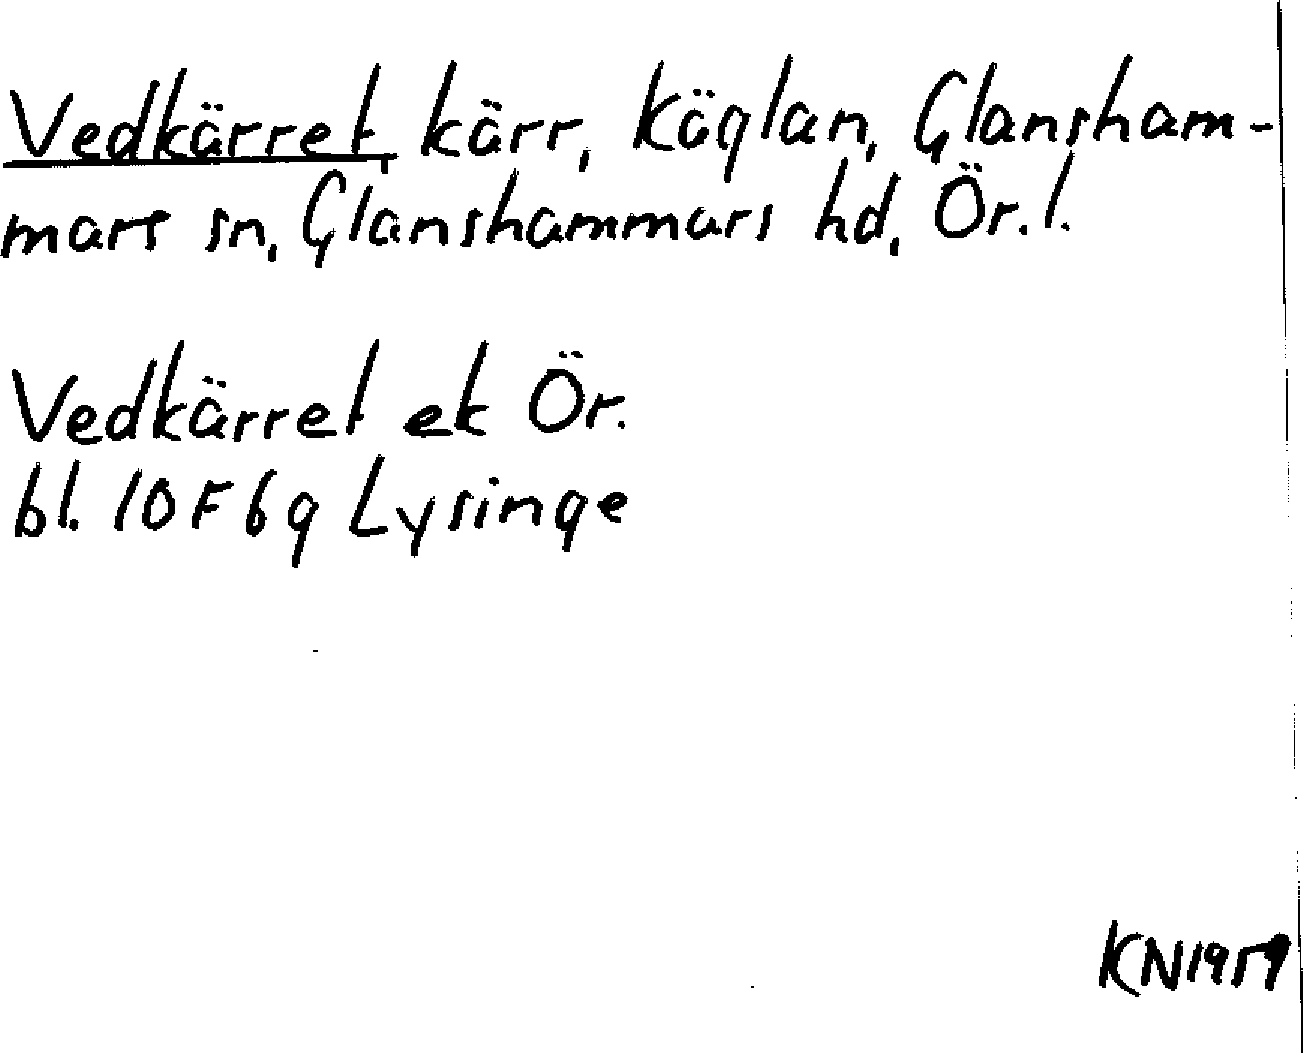 Vedkärret, kärr, Käglan, Glansham-
mars sn, Glanshammars hd, Ör. l.
Vedkärret ek Ör.
bl. 10 F 6 g Lysinge
KN 1959